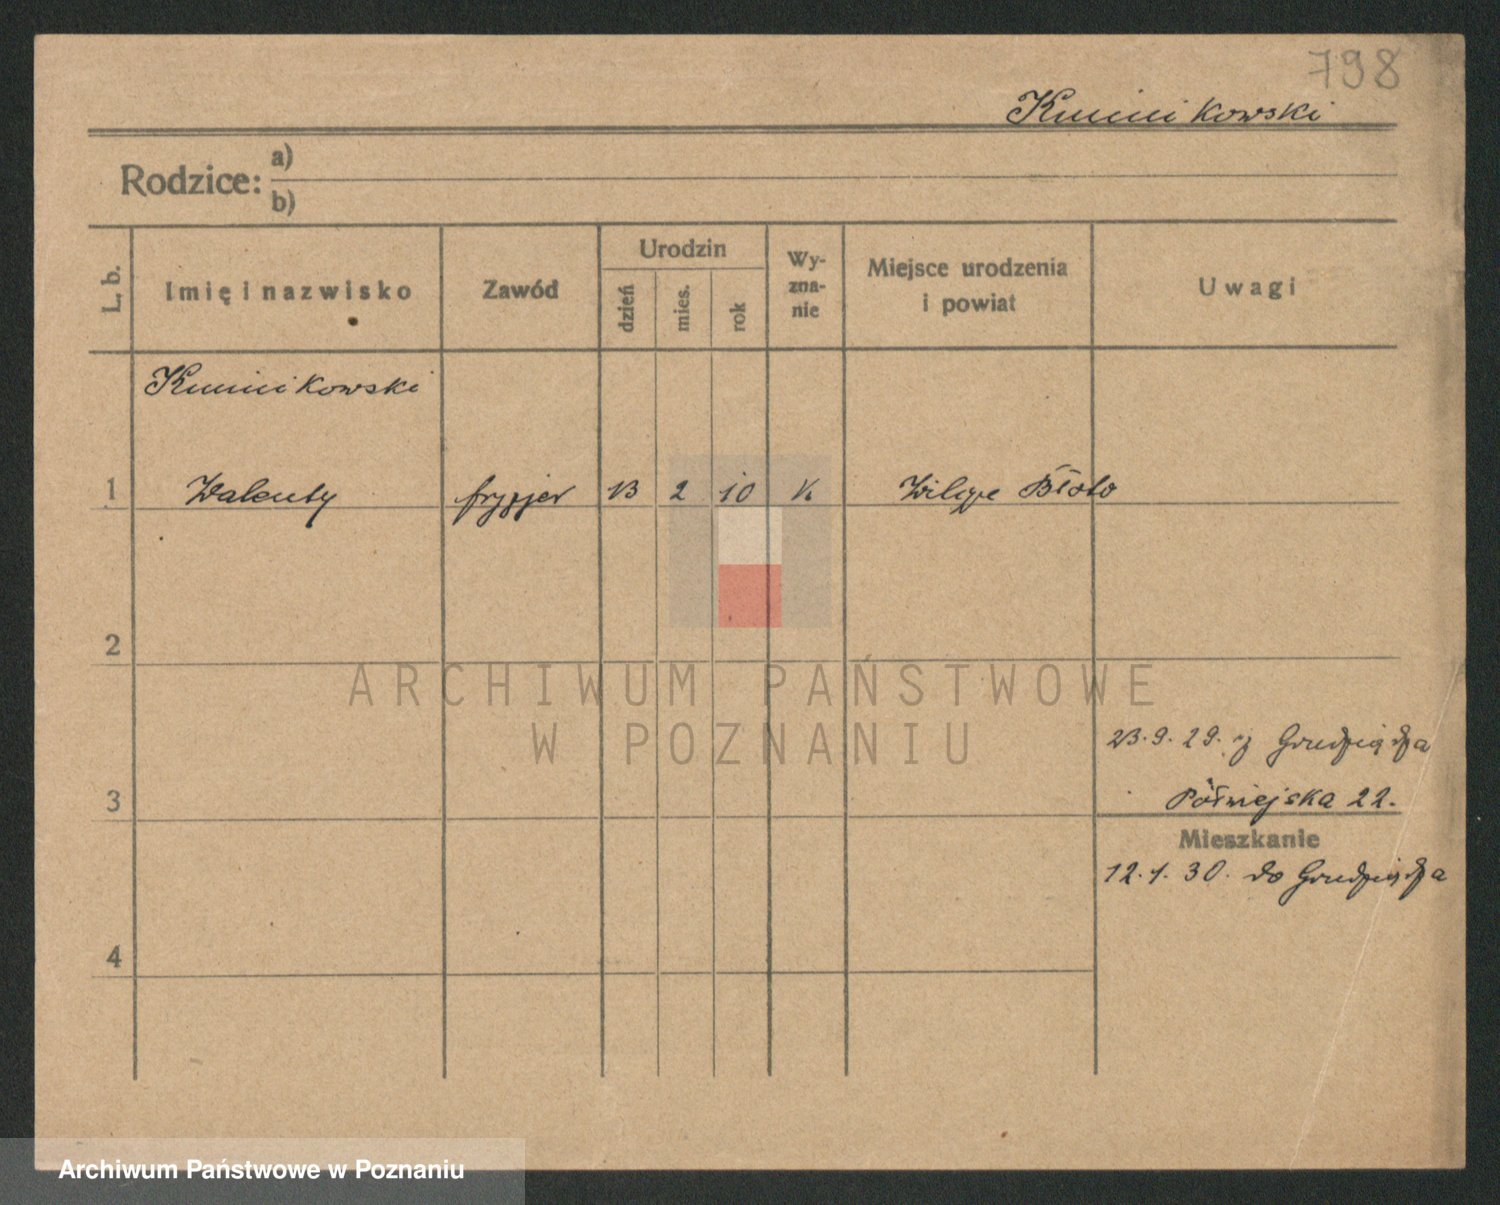 798
Kminikowski
Rodzice:
a)
b)
L. b.
Imię i nazwisko
Zawód
Urodzin
dzień
mies.
rok
Wy-
zna-
nie
Miejsce urodzenia
i powiat
Uwagi
Kminikowski
1 Walenty fryzjer 13 2 10 k Wilcze Błoto
2
ARCHIWUM PAŃSTWOWE
W POZNANIU
23.9.29. z Grudziądza
3 Półwiejska 22.
Mieszkanie
12.1.30. do Grudziądza
4
Archiwum Państwowe w Poznaniu